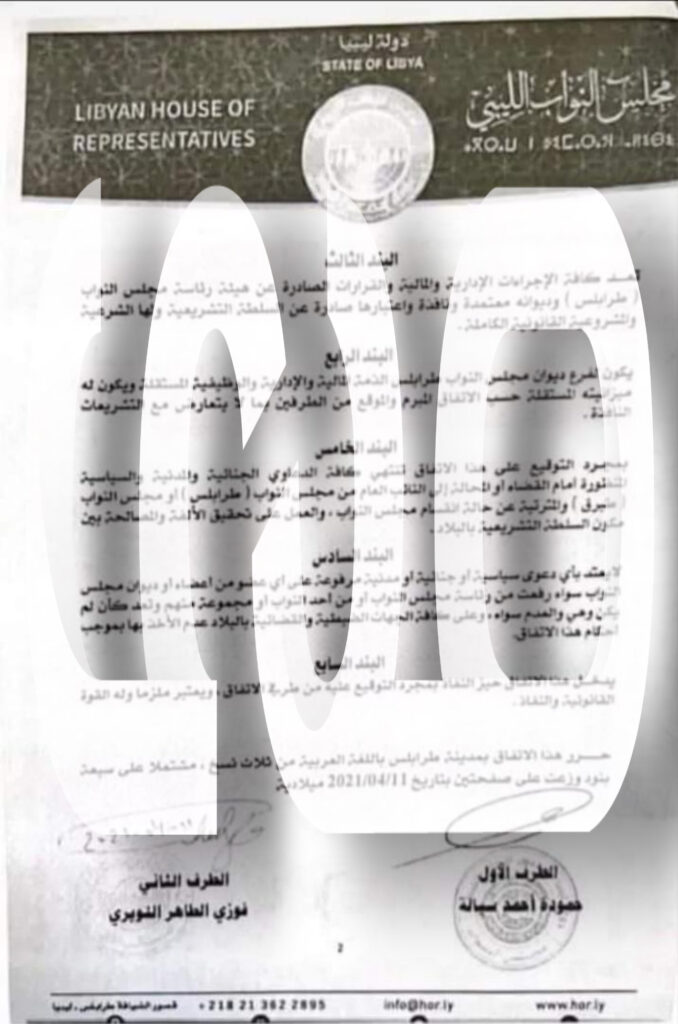 دولة ليبيا
STATE OF LIBYA
LIBYAN HOUSE OF
REPRESENTATIVES
مجلس النواب الليبي
البند الثالث
تعد كافة الإجراءات الإدارية والمالية والقرارات الصادرة عن هيئة رئاسة مجلس النواب
( طرابلس ) وديوانه معتمدة ونافذة واعتبارها صادرة عن السلطة التشريعية ولها الشرعية
والمشروعية القانونية الكاملة .
البند الرابع
يكون لفرع ديوان مجلس النواب طرابلس الذمة المالية والإدارية والوظيفية المستقلة ويكون له
ميزانيته المستقلة حسب الاتفاق المبرم والموقع من الطرفين بما لا يتعارض مع التشريعات
النافذة .
البند الخامس
بمجرد التوقيع على هذا الاتفاق تنتهي كافة الدعاوي الجنائية والمدنية والسياسية
المنظورة أمام القضاء أو المحالة إلى النائب العام من مجلس النواب ( طرابلس ) أو مجلس النواب
( طبرق ) والمترتبة عن حالة انقسام مجلس النواب ، والعمل على تحقيق الألفة والمصالحة بين
مكون السلطة التشريعية بالبلاد .
البند السادس
لا يعتد بأي دعوى سياسية أو جنائية أو مدنية مرفوعة على أي عضو من أعضاء أو ديوان مجلس
النواب سواء رفعت من رئاسة مجلس النواب أو من أحد النواب أو مجموعة منهم وتعد كأن لم
يكن وهي والعدم سواء ، وعلى كافة الجهات الضبطية والقضائية بالبلاد عدم الأخذ بها بموجب
أحكام هذا الاتفاق.
البند السابع
يدخل هذا الاتفاق حيز النفاذ بمجرد التوقيع عليه من طرفي الاتفاق ، ويعتبر ملزما وله القوة
القانونية والنفاذ .
حرر هذا الاتفاق بمدينة طرابلس باللغة العربية من ثلاث نسخ ، مشتملا على سبعة
بنود وزعت على صفحتين بتاريخ 2021/04/11 ميلادية
الطرف الأول
حمودة أحمد سيالة
الطرف الثاني
فوزي الطاهر النويري
2
www.hor.ly
info@hor.ly
+218 21 362 2895
قصور الضيافة طرابلس ، ليبيا